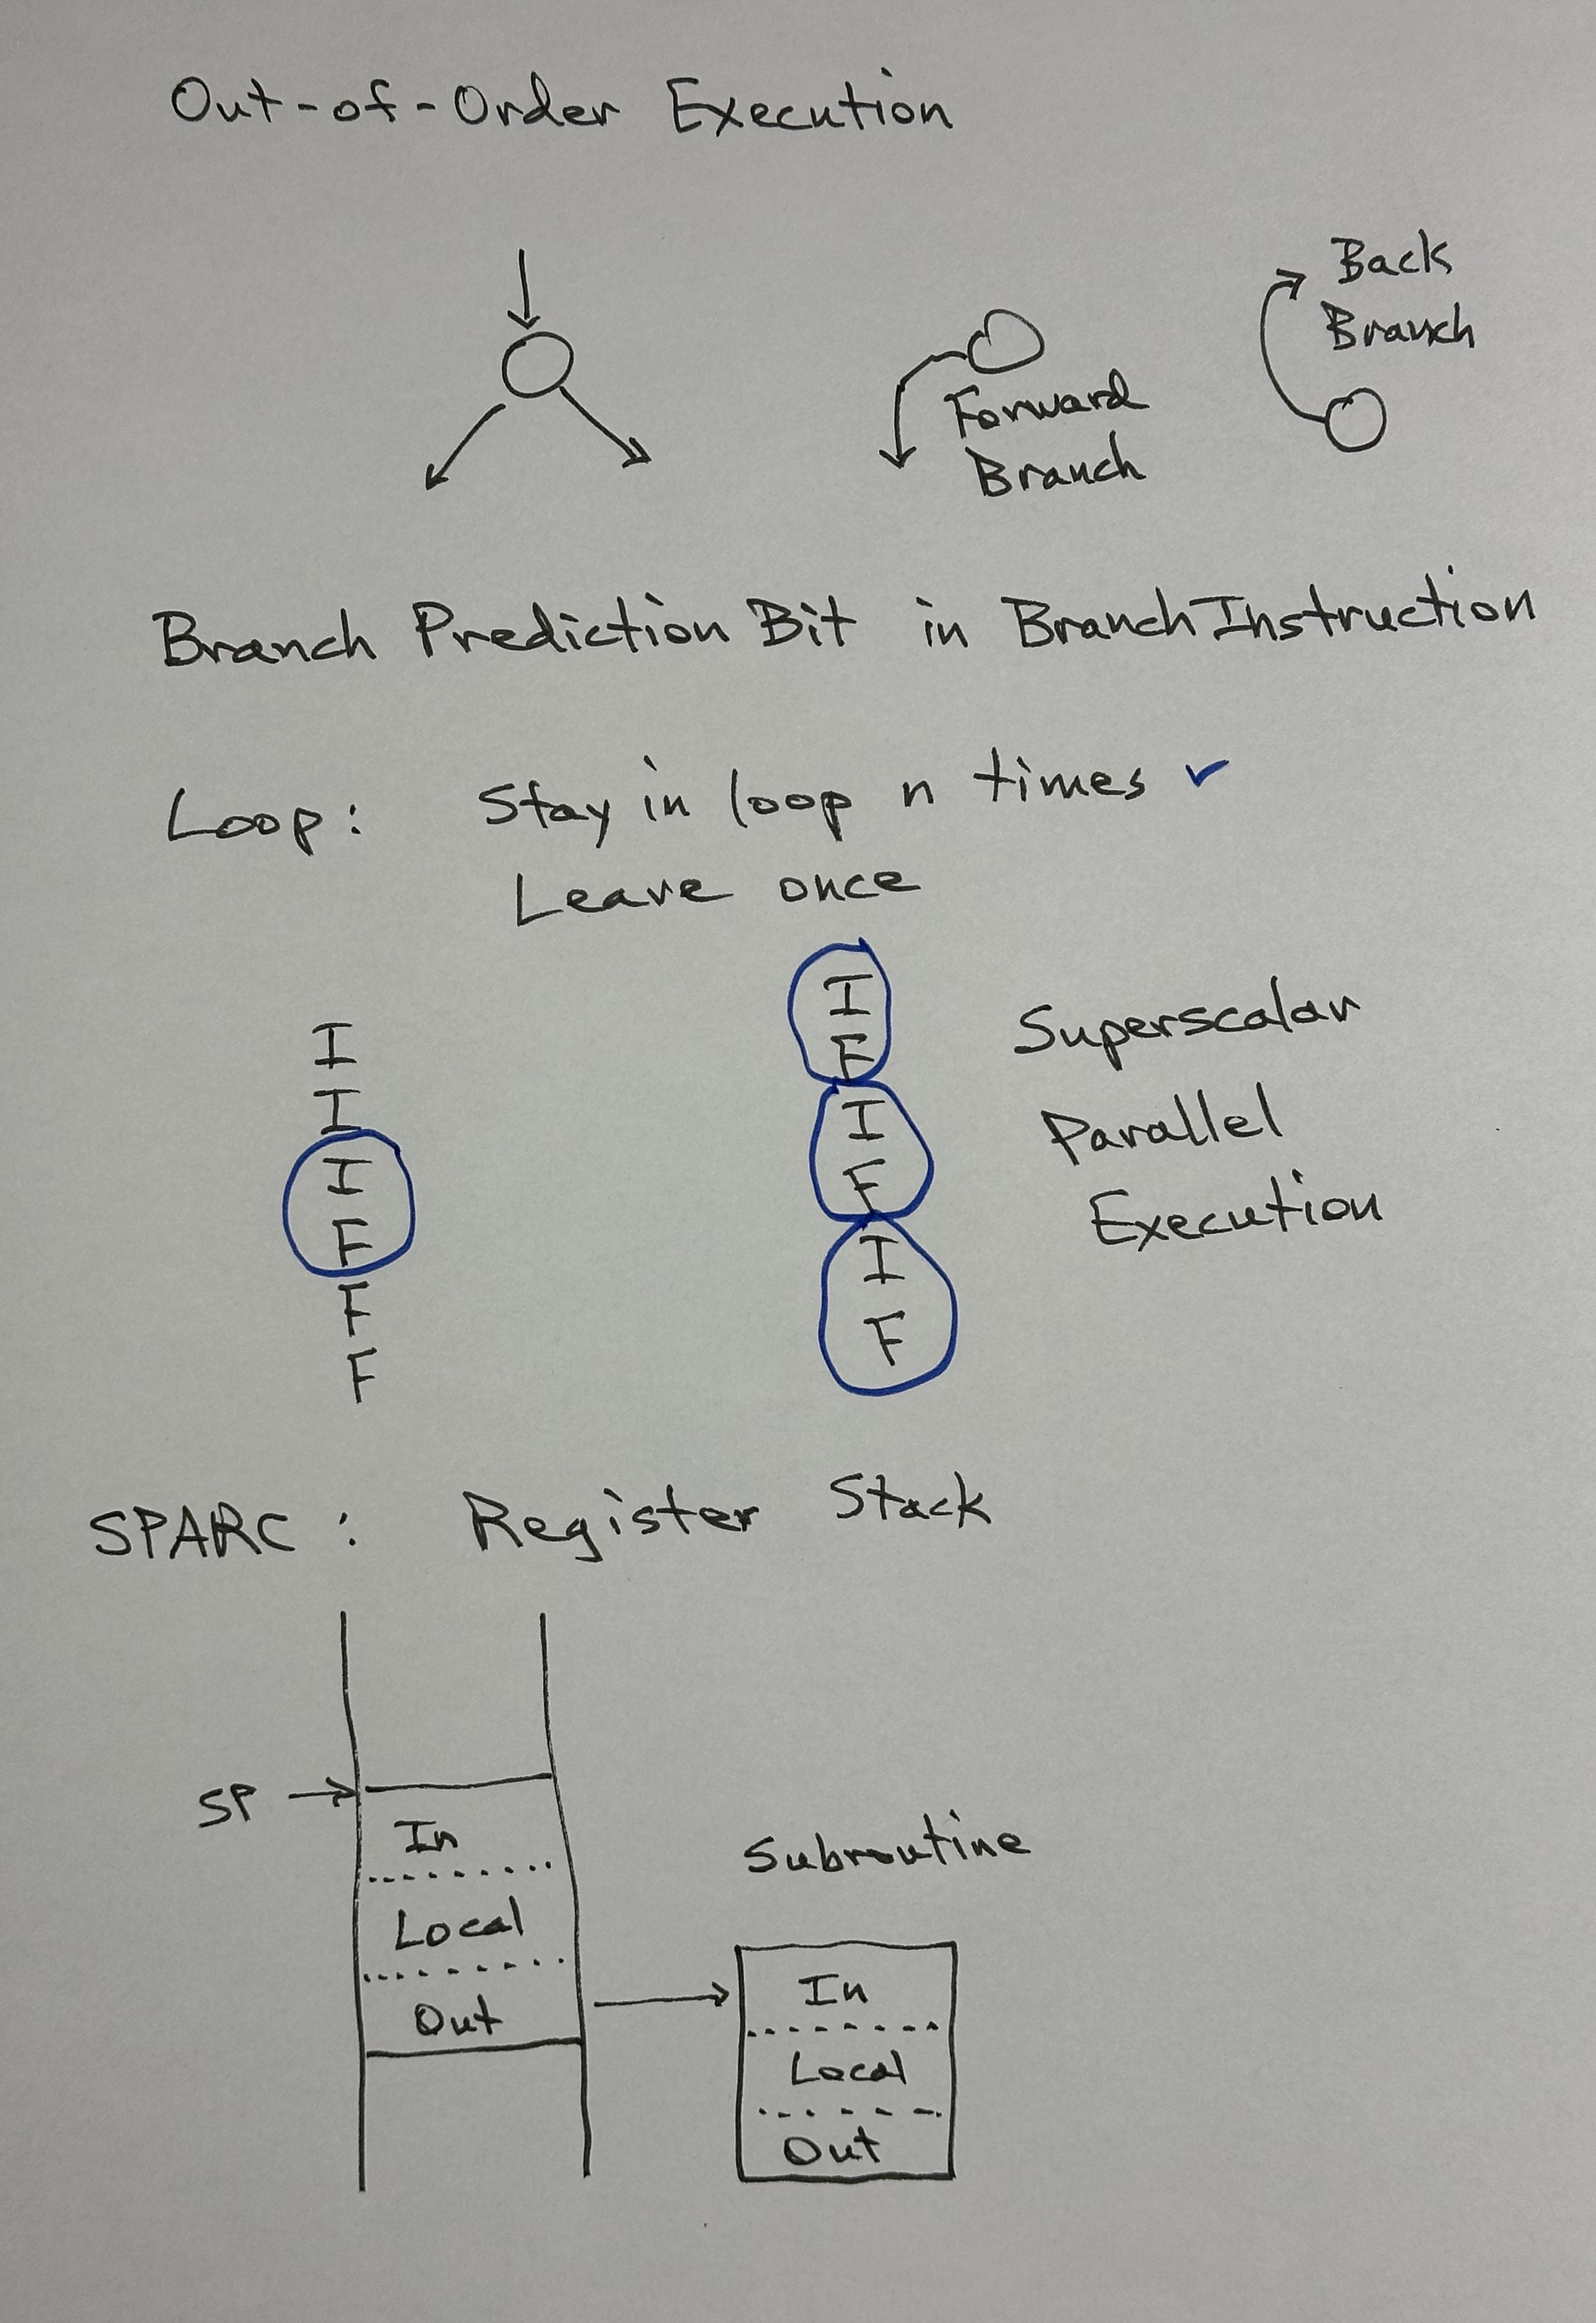 Out-of-Order Execution
Back
Branch
Forward
Branch
Branch Prediction Bit in Branch Instruction
Loop: Stay in loop n times ✓
Leave once
I
I
I
F
F
F
I
F
I
F
I
F
Superscalar
Parallel
Execution
SPARC: Register Stack
SP
In
Local
Out
Subroutine
In
Local
Out